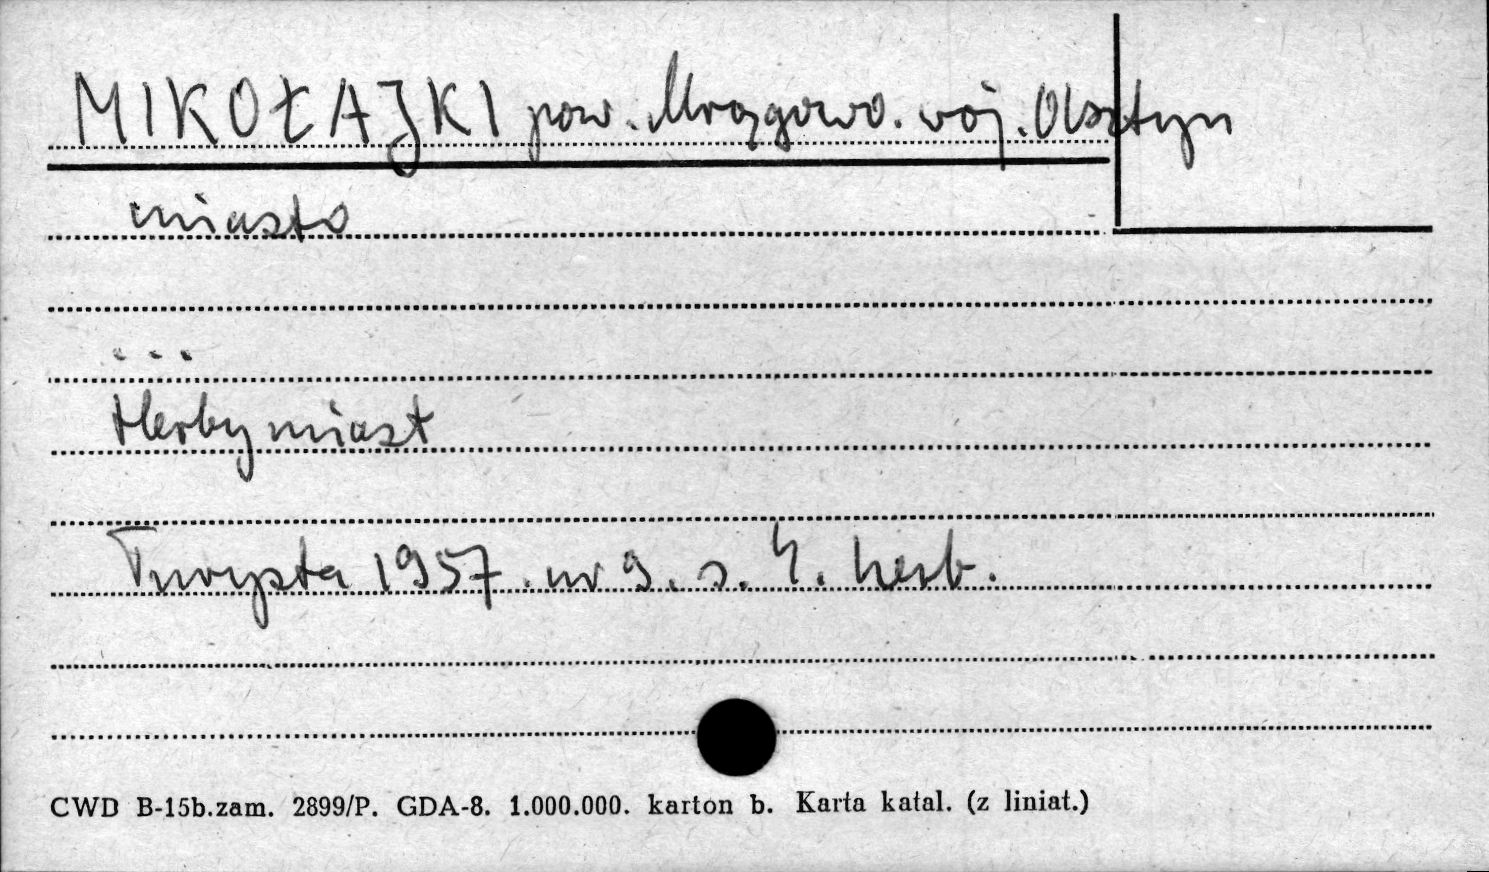 MIKOŁAJKI pow. Mrągowo. woj. Olsztyn
miasto
...
Herby miast
Turysta 1957. nr 9. s. 4. herb.
CWD B-15b.zam. 2899/P. GDA-8. 1.000.000. karton b. Karta katal. (z liniat.)